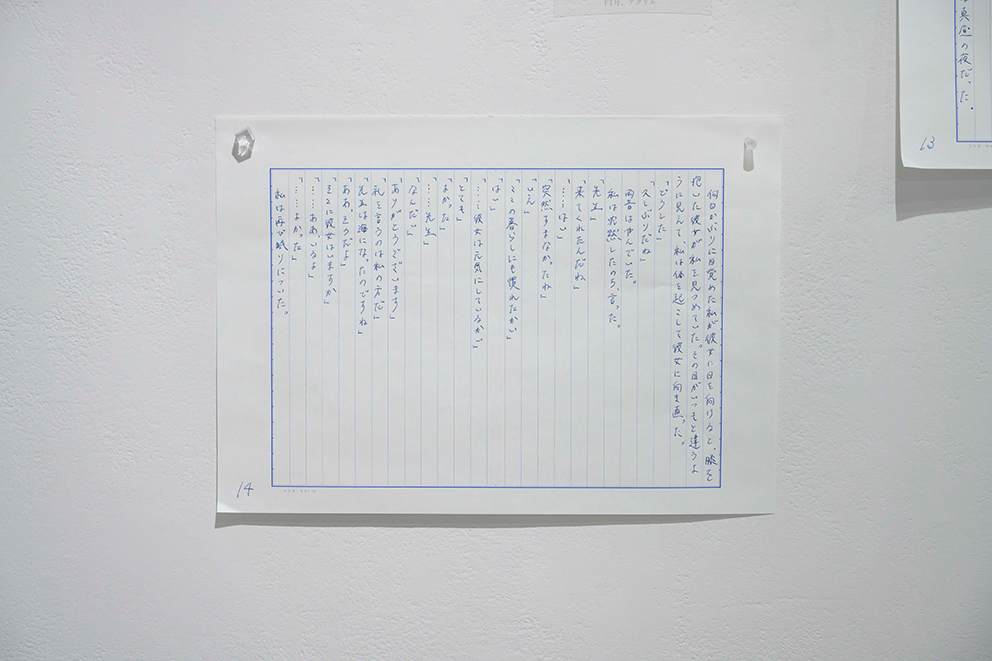 真屋の夜だった。
13
何日かぶりに目覚めた私が彼女に目を向けると、膝を
抱いた彼女が私を見つめていた。その目がいつもと違うよ
うに見えて、私は体を起こして彼女に向き直った。
「どうした」
「久しぶりだね」
雨音は止んでいた。
私は呆然としたのち、言った。
「先生」
「来てくれたんだね」
「……はい」
「突然すまなかったね」
「いえ」
「ここの暮らしにも慣れたかい」
「はい」
「……彼女は元気にしているかい」
「とても」
「よかった」
「……先生」
「なんだい」
「ありがとうございます」
「礼を言うのは私の方だ」
「先生は海になったのですね」
「ああ、そうだよ」
「そこに彼女はいますか」
「……ああ、いるよ」
「……よかった」
私は再び眠りについた。
14